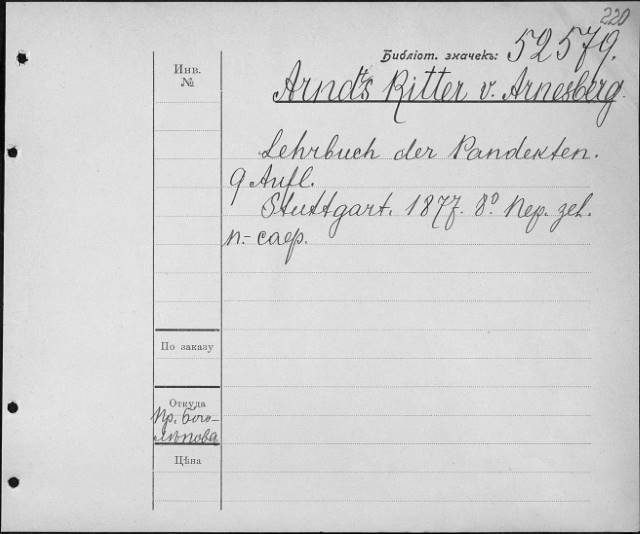 220
Библіот. значекъ: 52579.
Инв.
№
Arndts Ritter v. Arnesberg.
Lehrbuch der Pandekten.
9 Aufl.
Stuttgart. 1877. 8º. Пер. зел.
п.-саф.
По заказу
Откуда
Пр. Бого-
лѣпова
Цѣна